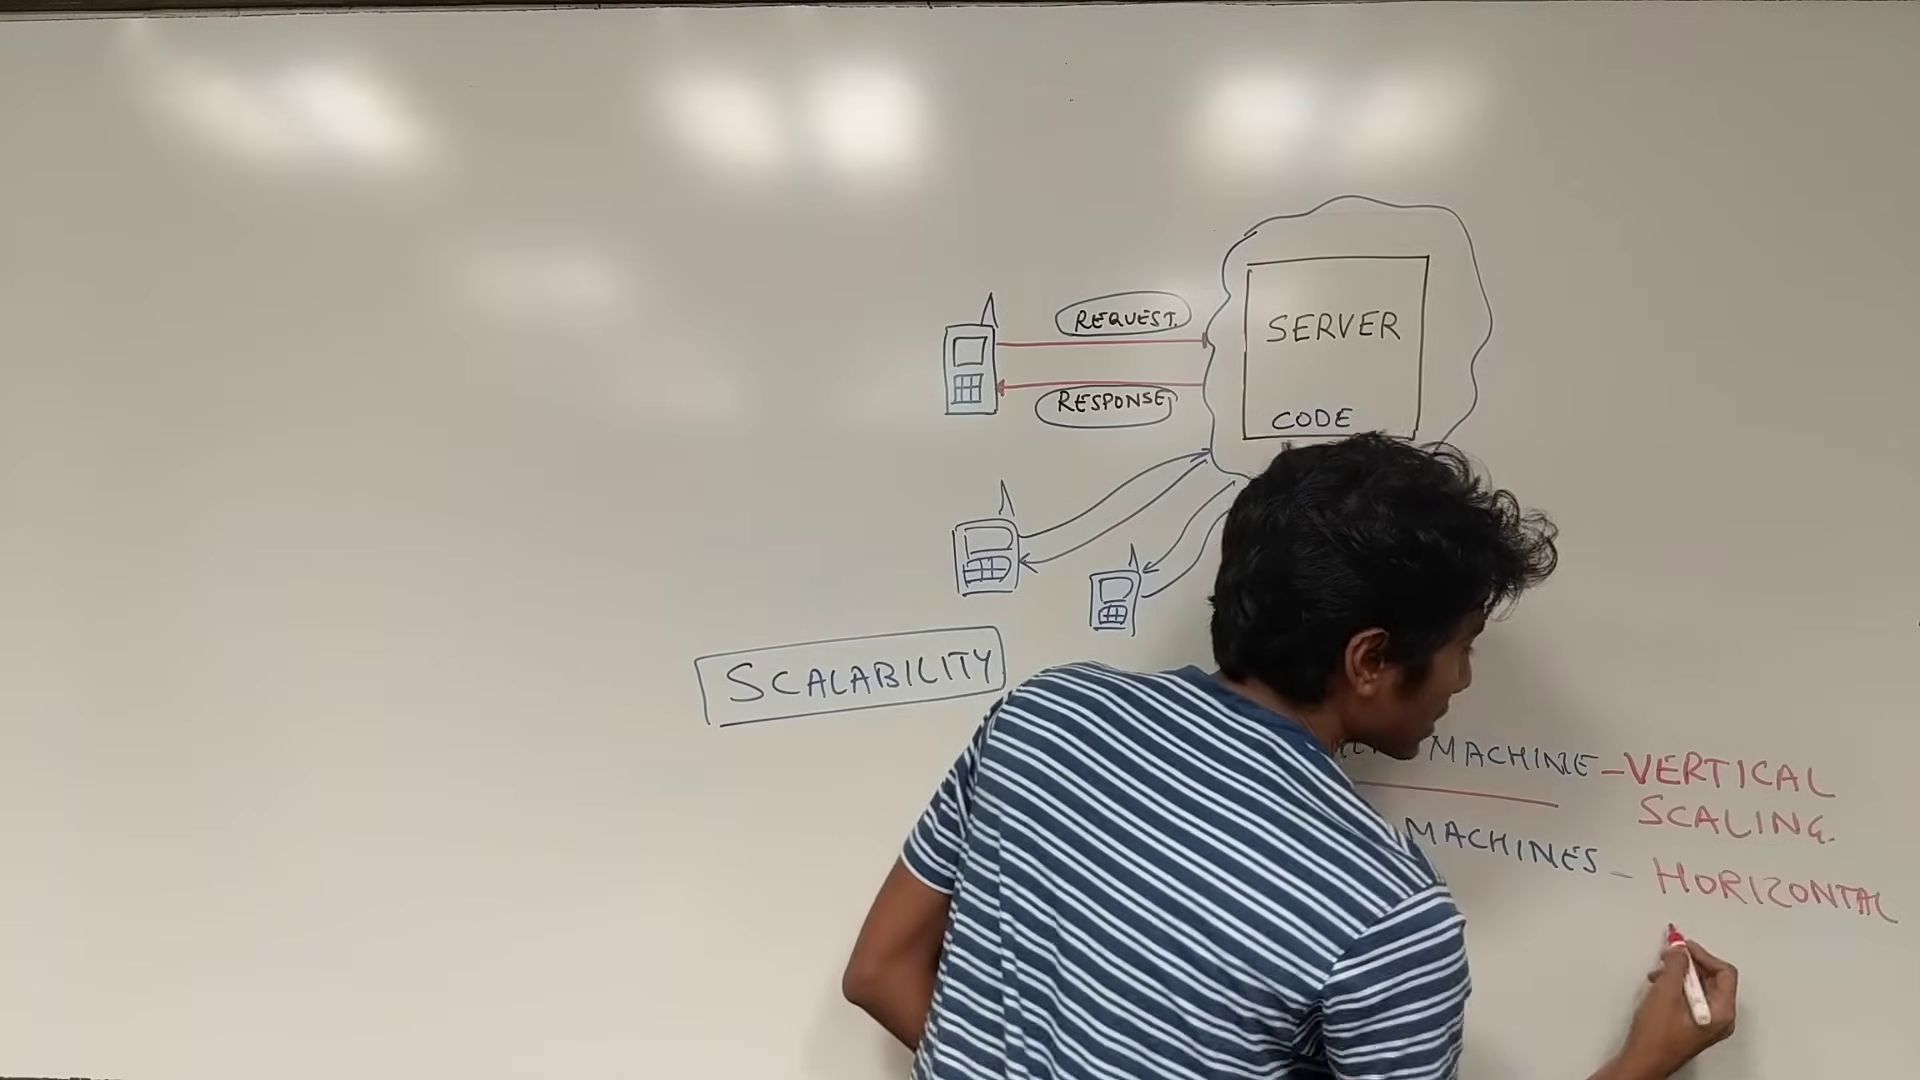 REQUEST.
SERVER
RESPONSE
CODE
SCALABILITY
MACHINE - VERTICAL
SCALING.
MACHINES - HORIZONTAL